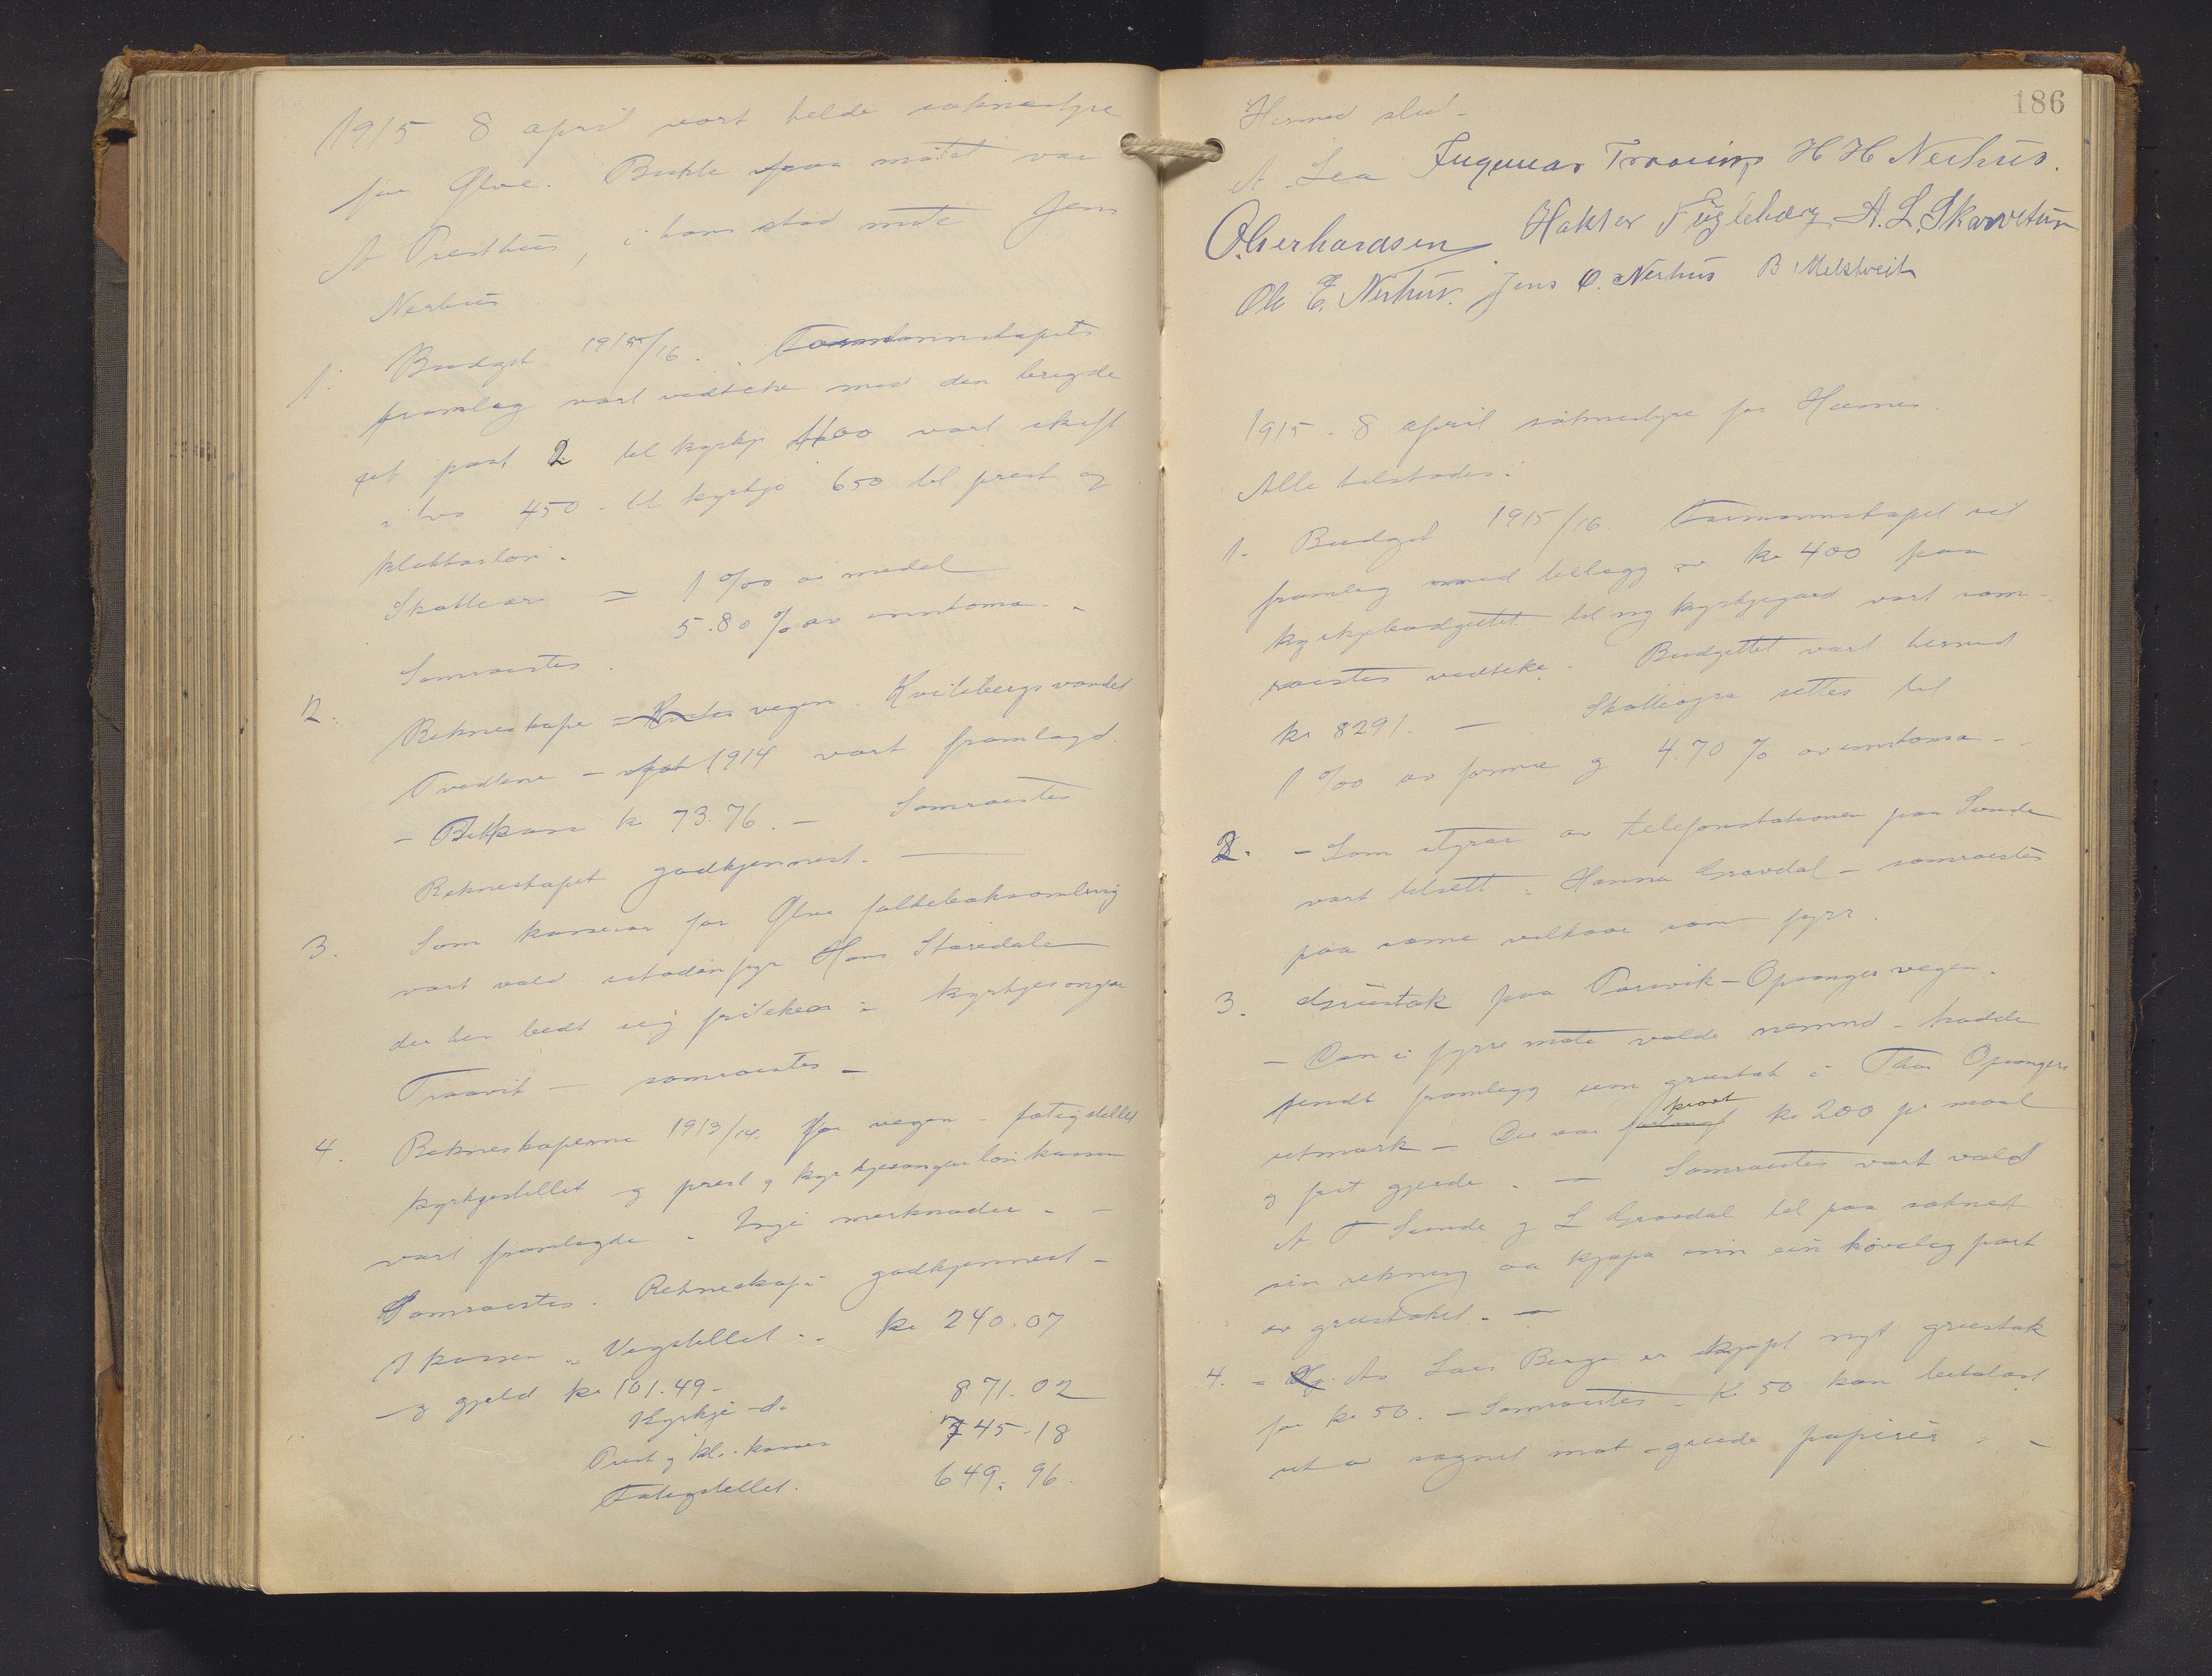 1915 8 april vart helde soknestyre
for Ølve. Burte fraa møtet var
A Presthus, i hans stad møte Jens
Nerhus
1. Budget 1915/16. Formannskapets
framlag vart vedteke med den brigde
at post 2 til kyrkje 1100 vart skift
i tvo 450 - til kyrkje 650 til prest og
klokkarløn.
Skatteøre = 1 ‰ av medel
5.80 % av innkoma -
Samrøystes.
2. Rekneskape = vegen Kvitebergsvandet
Tvedtene - 1914 vart framlagd.
- Behhaar kr 73.76. - Samrøystes
Rekneskapet godkjennest. -
3. Som kasserar for Ølve folkeboksamling
vart vald istadenfyr Hans Staredale
der har bedt seg friteken: kyrkjesongar
Traavik - samrøystes -
4. Rekneskaperne 1913/14. for vegen - fatigstellet
kyrkjestellet og prest og kyrkjesongarlønkassen
vart framlagde. Ingi merknader - -
Samrøystes. Rekneskapi godkjennest -
I kassen: Vegstellet: kr 240.07
- og gjeld kr 101.49 -
Kyrkje - do 871.02
Prest og kl. kassen 745-18
Fatigstellet. 649.96.
186
Hermed slut -
A Lea Ingmar Traavik H H Nerhus.
O. Gerhardsen Haktor Fugleberg A. L. Skarvatun
Ole E. Nerhus. Jens O. Nerhus B Melstveit
1915 - 8 april soknestyre for Hærnes.
Alle tilstades:
1. Budget 1915/16. Formannskapet sit
framlag med tillegg av kr 400 paa
kyrkjebudgettet til ny kyrkjegard vart sam-
røystes vedteke. Budgettet vart hermed
kr 8291. - Skatteøyra settes til
1 ‰ av formue og 4.70 % av innkoma -
2. - Som styrar av telefonstationen paa Sunde
vart tilsett: Hanna Gravdal - samrøystes
paa same vilkaar som fyrr.
3. Grustak paa Porsvik - Opsanger vegen.
- Den i fyrre møte valde nemnd - hadde
sendt framlegg um grustak i Thor Opsangers
utmark - Der var kravt kr 200 pr maal
og frit gjerde. - Samrøystes vart vald
A T Sunde og L Gravdal til paa soknet
sin rekning aa kjøpa inn ein høveleg part
av grustaket. -
4. - Av Lars Berge er kjøpt nyt grustak
for kr 50. - Samrøystes - Kr 50 kan betalast
ut av sognet mot greide papirer. -